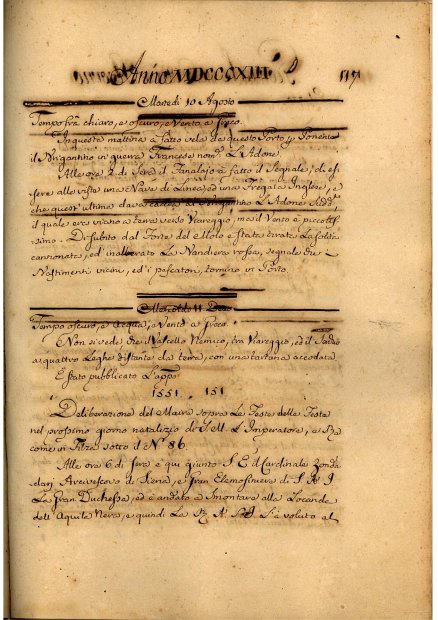 Anno MDCCCXIII
Martedì 10 Agosto
Tempo frà chiaro, e oscuro, e Vento a
In questa mattina à fatto vela da questo Porto p Ponente
il Brigantino in guerra Francese nom.° L'Adone
Alle ore 2 di Sera il Fanalajo à fatto il Segnale, di es-
sere alla vista una Nave di Linea, ed una Fregata Inglese, e
che quest'ultima dava caccia al Brigantino L'Adone Sudd.°
il quale era vicino a terra verso Viareggio, ma il Vento è piccolis-
simo. Di subito dal Forte del Molo è stata tirata La solita
cannonata, ed inalberato La Bandiera rossa, segnale che i
Bastimenti vicini, ed i pescatori, tornino in Porto.
Mercoledì 11 Detto
Tempo oscuro, e Acqua, e Vento a
Non si vede che il Vascello Nemico, tra Viareggio, ed il
a quattro Leghe distante da terra, con una tartana accodata
È stato pubblicato L'appo
1551 151
Deliberazione del Maire sopra Le Feste della Festa
nel prossimo giorno natalizio di S. M. L'Imperatore, e Re
come in Filza sotto il N.° 86.
Alle ore 6 di Sera è qui giunto S. E. il Cardinale Zonda-
dari Arcivescovo di Siena, e Gran Elemosiniere di S. A. I
La Gran Duchessa, ed è andato a smontare alla Locanda
dell'Aquila Nera, e quindi La A. I. L'à voluto al